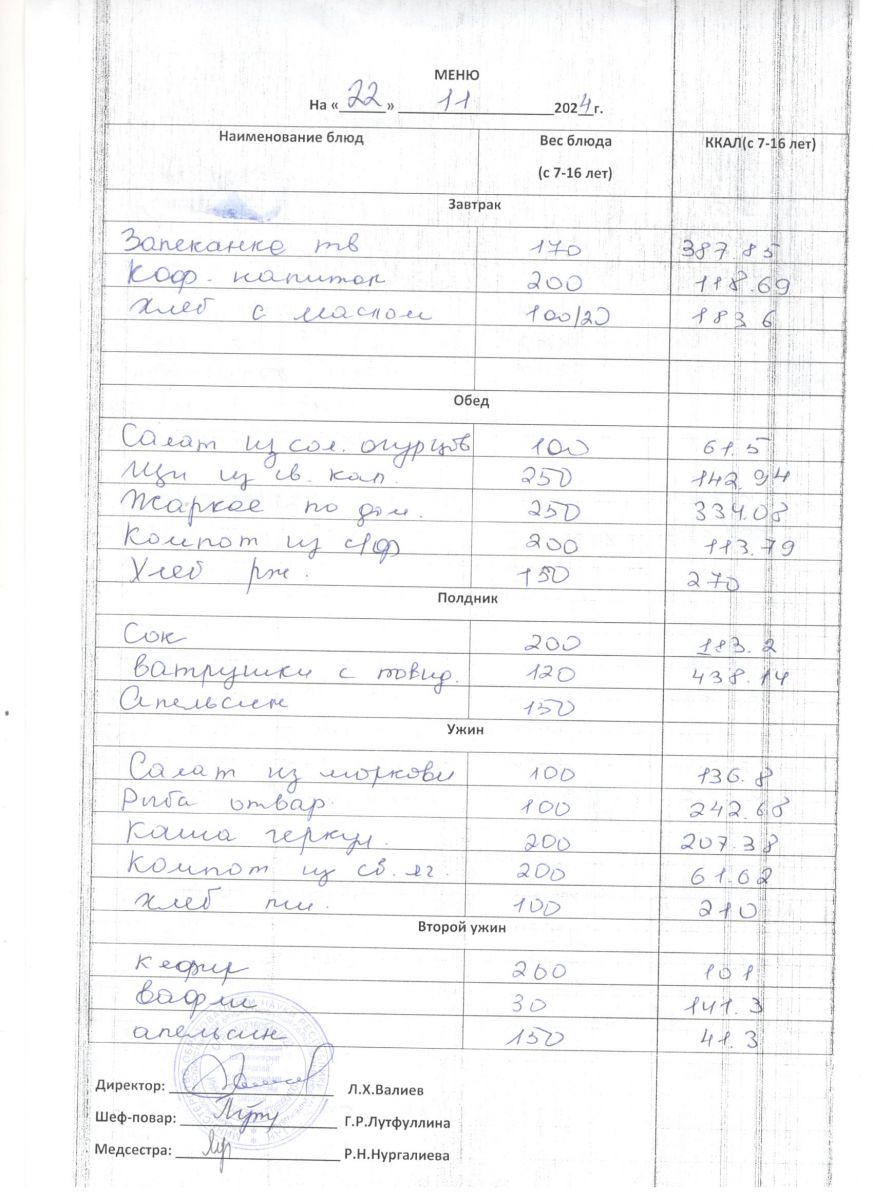 МЕНЮ
На «22» 11 2024 г.
Наименование блюд Вес блюда (с 7-16 лет) ККАЛ(с 7-16 лет)
Завтрак
Запеканка тв 170 387.85
Коф. напиток 200 118.69
Хлеб с маслом 100/20 183 6
Обед
Салат из сол. огурцов 100 61.5
Щи из св. кап. 250 142.94
Жаркое по дом. 250 334.08
Компот из с/ф 200 113.79
Хлеб рж. 150 270
Полдник
Сок 200 183.2
Ватрушки с повид. 120 438.14
Апельсин 150
Ужин
Салат из моркови 100 136.8
Рыба отвар. 100 242.68
Каша геркул. 200 207.38
Компот из св. яг. 200 61.62
Хлеб пш. 100 210
Второй ужин
кефир 200 101
вафли 30 141.3
апельсин 150 41.3
Директор: Л.Х.Валиев
Шеф-повар: Г.Р.Лутфуллина
Медсестра: Р.Н.Нургалиева